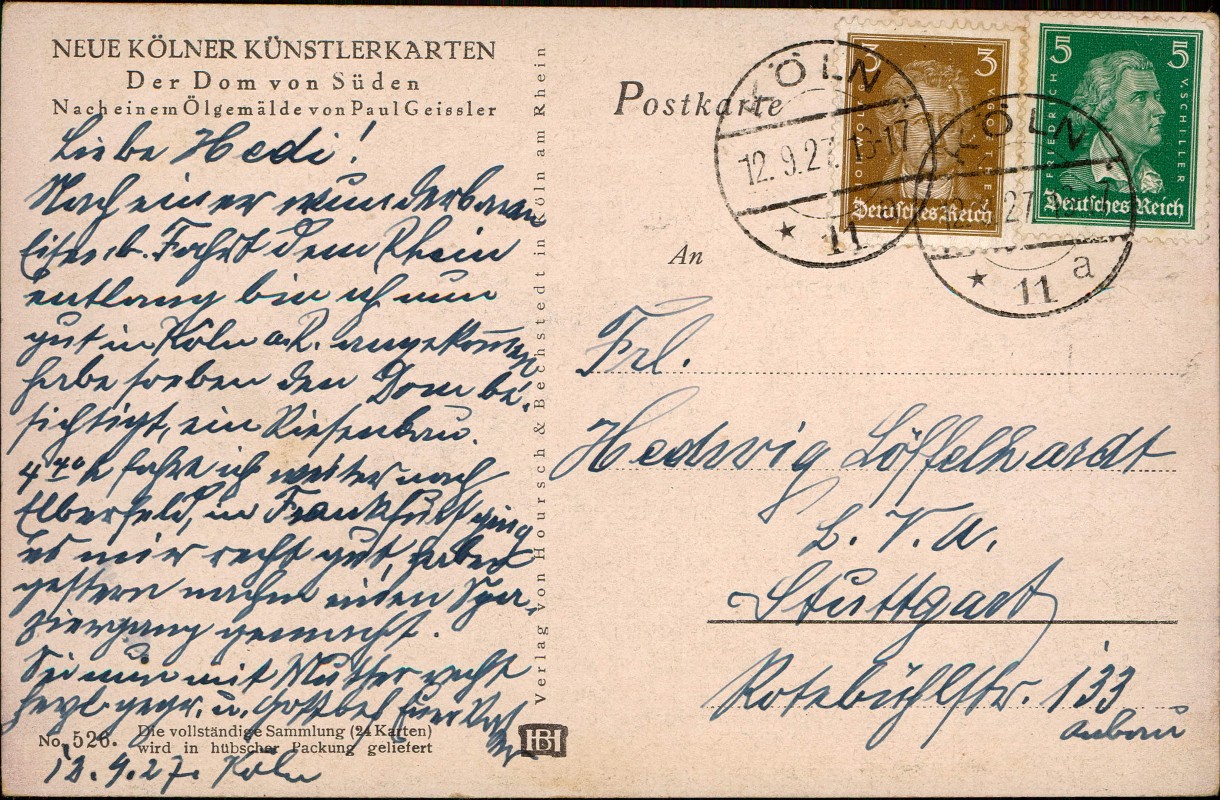 NEUE KÖLNER KÜNSTLERKARTEN
Der Dom von Süden
Nach einem Ölgemälde von Paul Geissler
Liebe Hedi!
Nach einer wunderbaren
Eisenb. Fahrt dem Rhein
entlang bin ich nun
gut in Köln a.R. angekommen
habe soeben den Dom be-
sichtigt, ein Riesenbau.
4 40 h fahre ich weiter nach
Elberfeld, in Frankfurt ging
es mir recht gut, haben
gestern nachm einen Spa-
ziergang gemacht.
Sei nun mit Mutter recht
herzl gegr. u.
12.9.27. Köln
No. 526.
Die vollständige Sammlung (24 Karten)
wird in hübscher Packung geliefert
Verlag von Hoursch & Bechstedt in Köln am Rhein
HB
Postkarte
An
Frl.
Hedwig Löffelhardt
L. V. A.
Stuttgart
Rotebühlstr. 133
Anbau
3 3
Deutsches Reich
5 5
FRIEDRICH V. SCHILLER
Deutsches Reich
KÖLN
12.9.27. 16-17
★ 11
KÖLN
27
★ 11 a